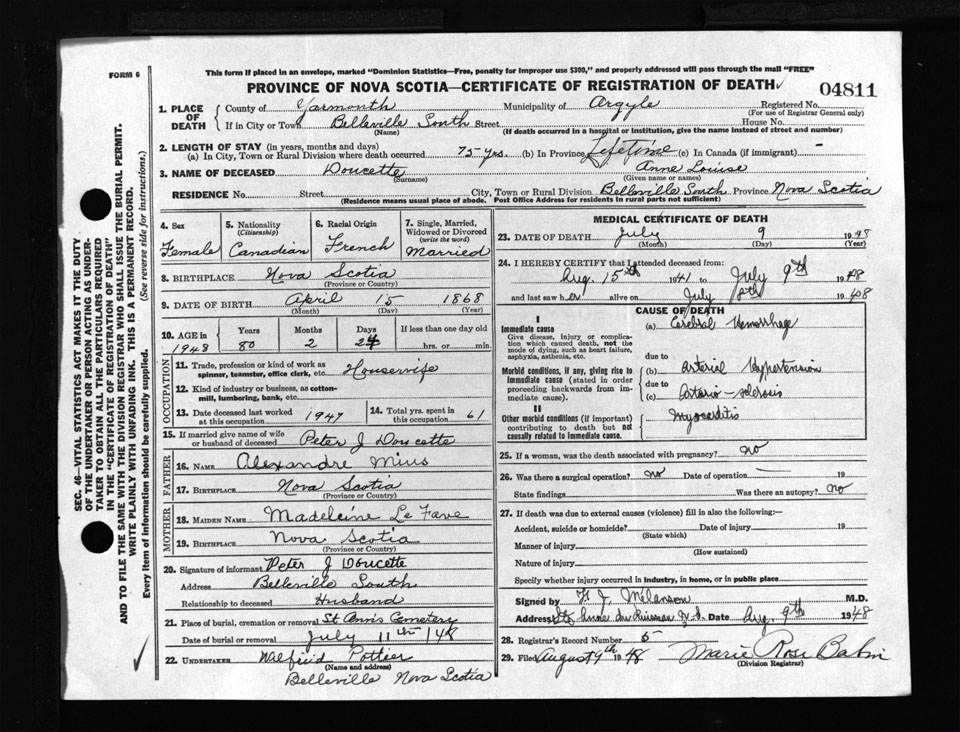 FORM 6
This form if placed in an envelope, marked "Dominion Statistics—Free, penalty for improper use $300," and properly addressed will pass through the mail "FREE"
PROVINCE OF NOVA SCOTIA—CERTIFICATE OF REGISTRATION OF DEATH
04811
1. PLACE OF DEATH
County of Yarmouth Municipality of Argyle Registered No.
(For use of Registrar General only)
If in City or Town Belleville South Street House No.
(Name) (If death occurred in a hospital or institution, give the name instead of street and number)
2. LENGTH OF STAY (in years, months and days)
(a) In City, Town or Rural Division where death occurred 75 yrs. (b) In Province Lifetime (c) In Canada (if immigrant) —
3. NAME OF DECEASED Doucette Anne Louise
(Surname) (Given name or names)
RESIDENCE No. Street City, Town or Rural Division Belleville South Province Nova Scotia
(Residence means usual place of abode. Post Office Address for residents in rural parts not sufficient)
4. Sex
Female
5. Nationality
(Citizenship)
Canadian
6. Racial Origin
French
7. Single, Married, Widowed or Divorced
(write the word)
Married
8. BIRTHPLACE Nova Scotia
(Province or Country)
9. DATE OF BIRTH April 15 1868
(Month) (Day) (Year)
10. AGE in Years Months Days If less than one day old
1948 80 2 24 hrs. or min.
OCCUPATION
11. Trade, profession or kind of work as Housewife
spinner, teamster, office clerk, etc.
12. Kind of industry or business, as cotton-
mill, lumbering, bank, etc.
13. Date deceased last worked
at this occupation 1947
14. Total yrs. spent in
this occupation 61
15. If married give name of wife
or husband of deceased Peter J Doucette
FATHER
16. NAME Alexandre Mius
17. BIRTHPLACE Nova Scotia
(Province or Country)
MOTHER
18. MAIDEN NAME Madeleine Le Fave
19. BIRTHPLACE Nova Scotia
(Province or Country)
20. Signature of informant Peter J Doucette
Address Belleville South
Relationship to deceased Husband
21. Place of burial, cremation or removal St Ann's Cemetery
Date of burial or removal July 11th 148
22. UNDERTAKER Wilfrid Pottier
(Name and address)
Belleville Nova Scotia
MEDICAL CERTIFICATE OF DEATH
23. DATE OF DEATH July 9 1948
(Month) (Day) (Year)
24. I HEREBY CERTIFY that I attended deceased from:
Aug. 15th 1941 to July 9th 1948
and last saw her alive on July 8th 1948
CAUSE OF DEATH
I
Immediate cause
Give disease, injury or complica-
tion which caused death, not the
mode of dying, such as heart failure,
asphyxia, asthenia, etc.
(a) Cerebral Hemorrhage
due to
Morbid conditions, if any, giving rise to
immediate cause (stated in order
proceeding backwards from im-
mediate cause).
(b) Arterial Hypertension
due to
(c) Arterio-sclerosis
II
Other morbid conditions (if important)
contributing to death but not
causally related to immediate cause.
Myocarditis
25. If a woman, was the death associated with pregnancy? no
26. Was there a surgical operation? no Date of operation — 19
State findings Was there an autopsy? no
27. If death was due to external causes (violence) fill in also the following:—
Accident, suicide or homicide? Date of injury 19
(State which)
Manner of injury
(How sustained)
Nature of injury
Specify whether injury occurred in industry, in home, or in public place
Signed by H. J. Melanson M.D.
Address Ste Anne du Ruisseau N.S. Date Aug. 9th 1948
28. Registrar's Record Number 5
29. Filed August 9th 1948 Marie Rose Babin
(Division Registrar)
SEC. 46—VITAL STATISTICS ACT MAKES IT THE DUTY
OF THE UNDERTAKER OR PERSON ACTING AS UNDER-
TAKER TO OBTAIN ALL THE PARTICULARS REQUIRED
IN THE "CERTIFICATE OF REGISTRATION OF DEATH"
AND TO FILE THE SAME WITH THE DIVISION REGISTRAR WHO SHALL ISSUE THE BURIAL PERMIT.
WRITE PLAINLY WITH UNFADING INK. THIS IS A PERMANENT RECORD.
Every item of information should be carefully supplied. (See reverse side for instructions.)